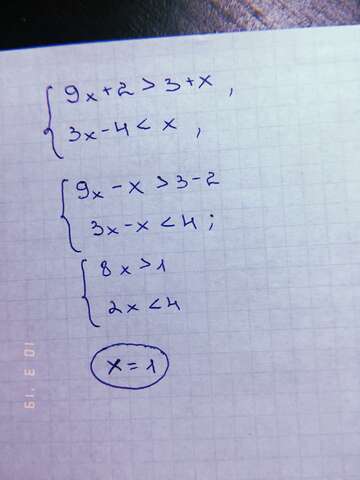 9x+2>3+x,
3x-4<x,
9x-x>3-2
3x-x<4;
8x>1
2x<4
x=1
10 3 '19